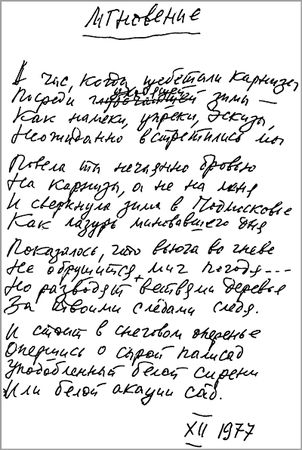 Мгновение
В час, когда щебетали карнизы
Посреди уходящей зимы —
Как намёки, упрёки, эскизы,
Неожиданно встретились мы
Повела ты нечаянно бровью
На карнизы, а не на меня
И сверкнула зима в Подмосковье
Как лазурь миновавшего дня
Показалось, что вьюга во гневе
Не обрушится, миг погодя...
Но разводят ветвями деревья
За твоими следами следя.
И стоит в снеговом оперенье
Опершись о сырой палисад
Уподобленный белой сирени
Или белой акации сад.
XII 1977